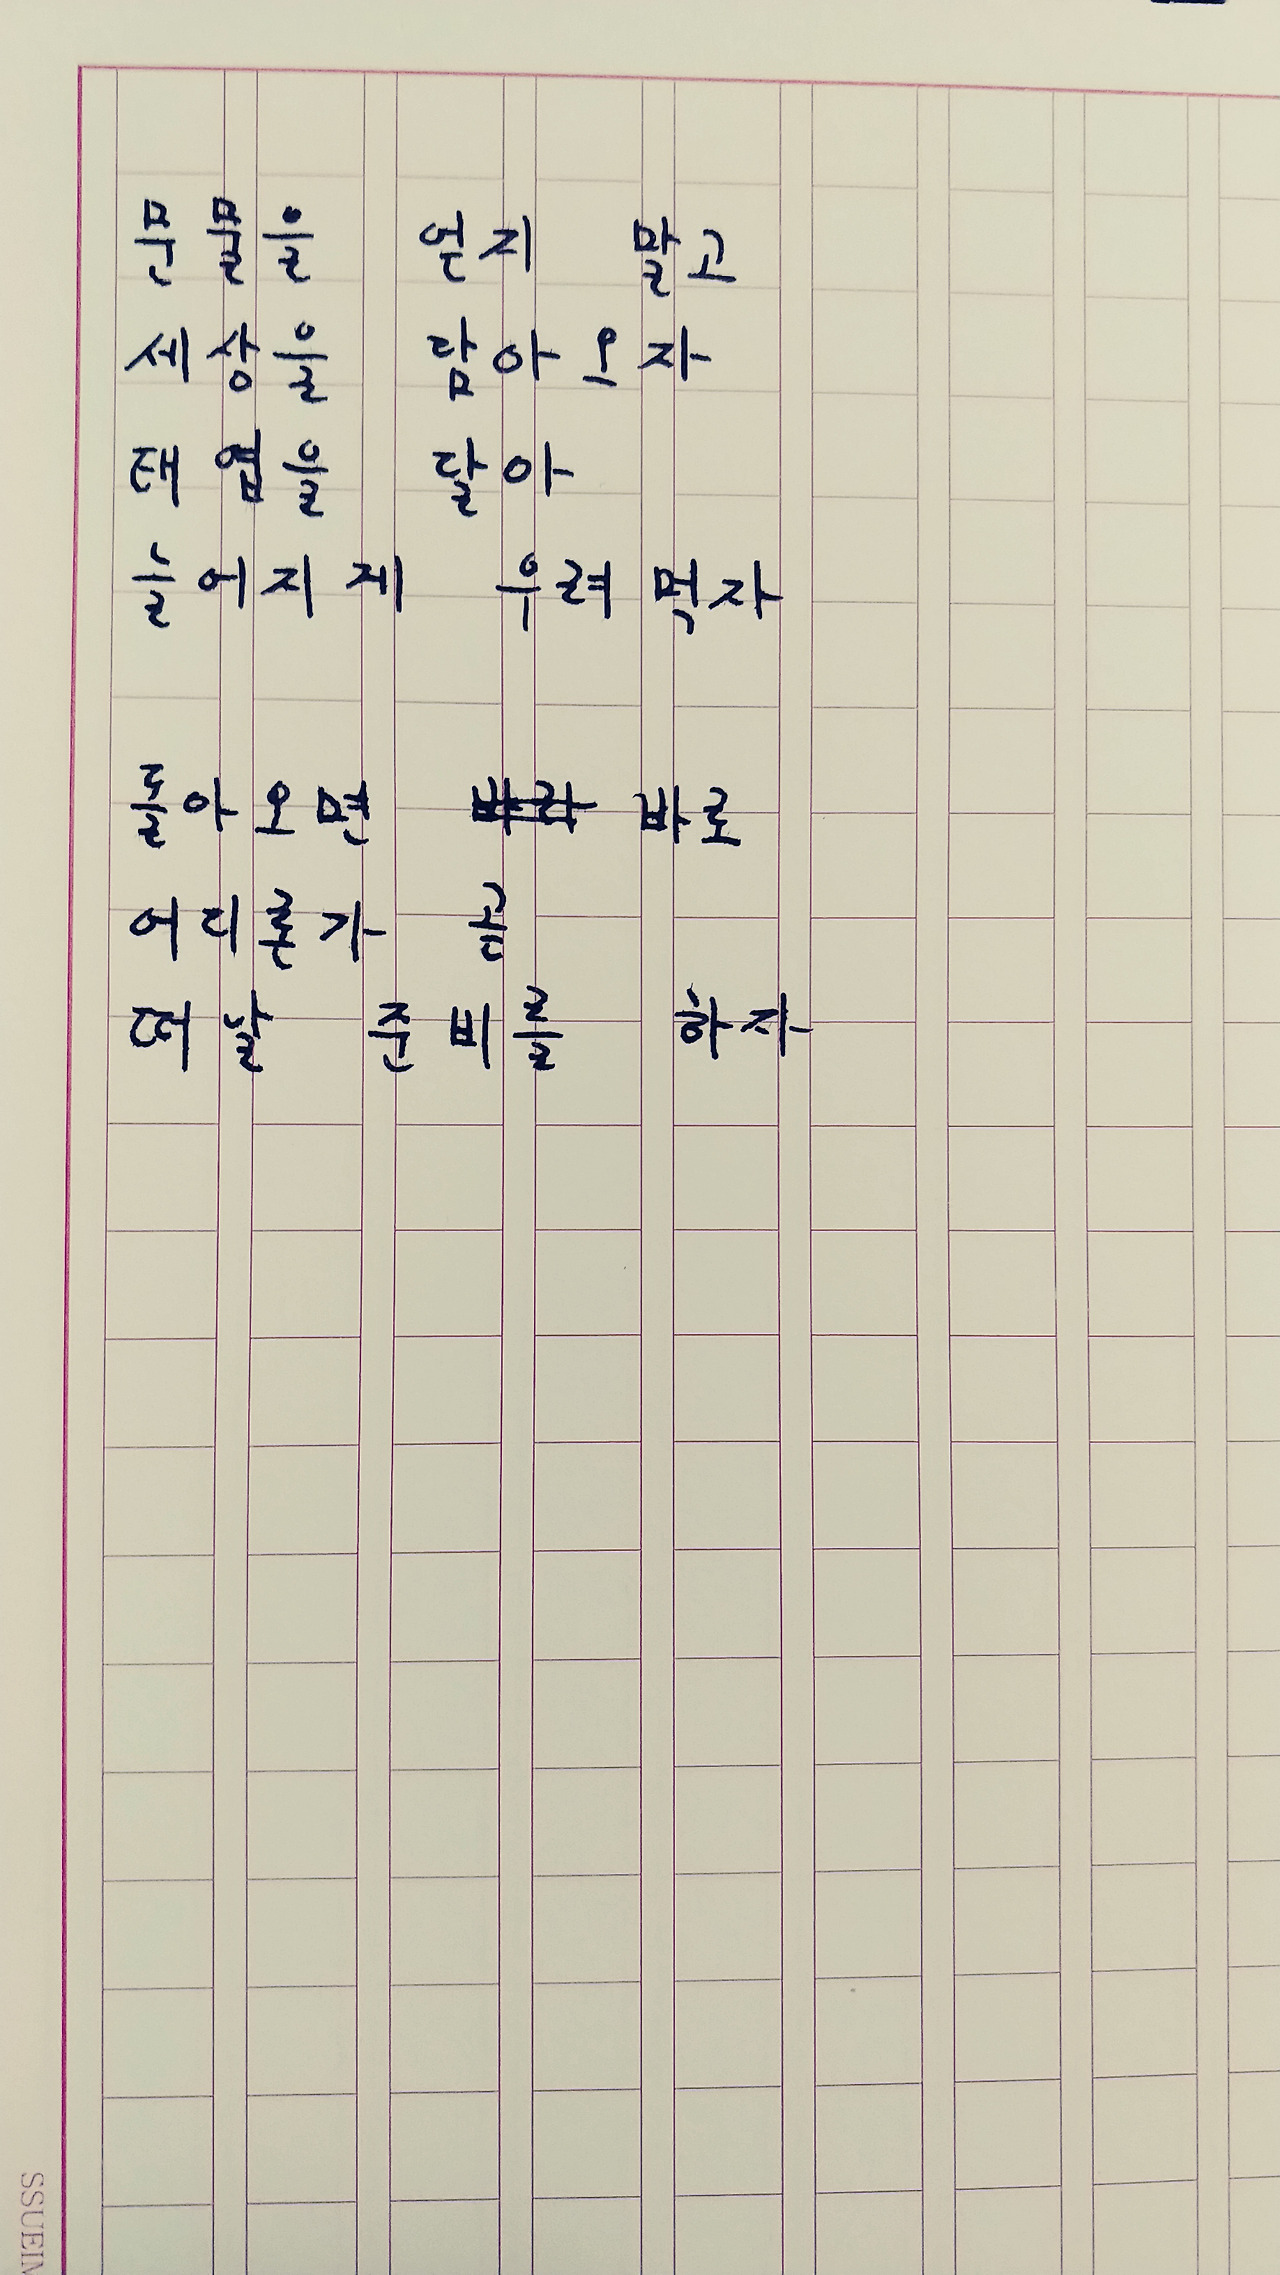 문물을 얻지 말고
세상을 담아오자
태엽을 달아
늘어지게 우려먹자
돌아오면 바라 바로
어디론가 곧
떠날 준비를 하자
SSUEIM